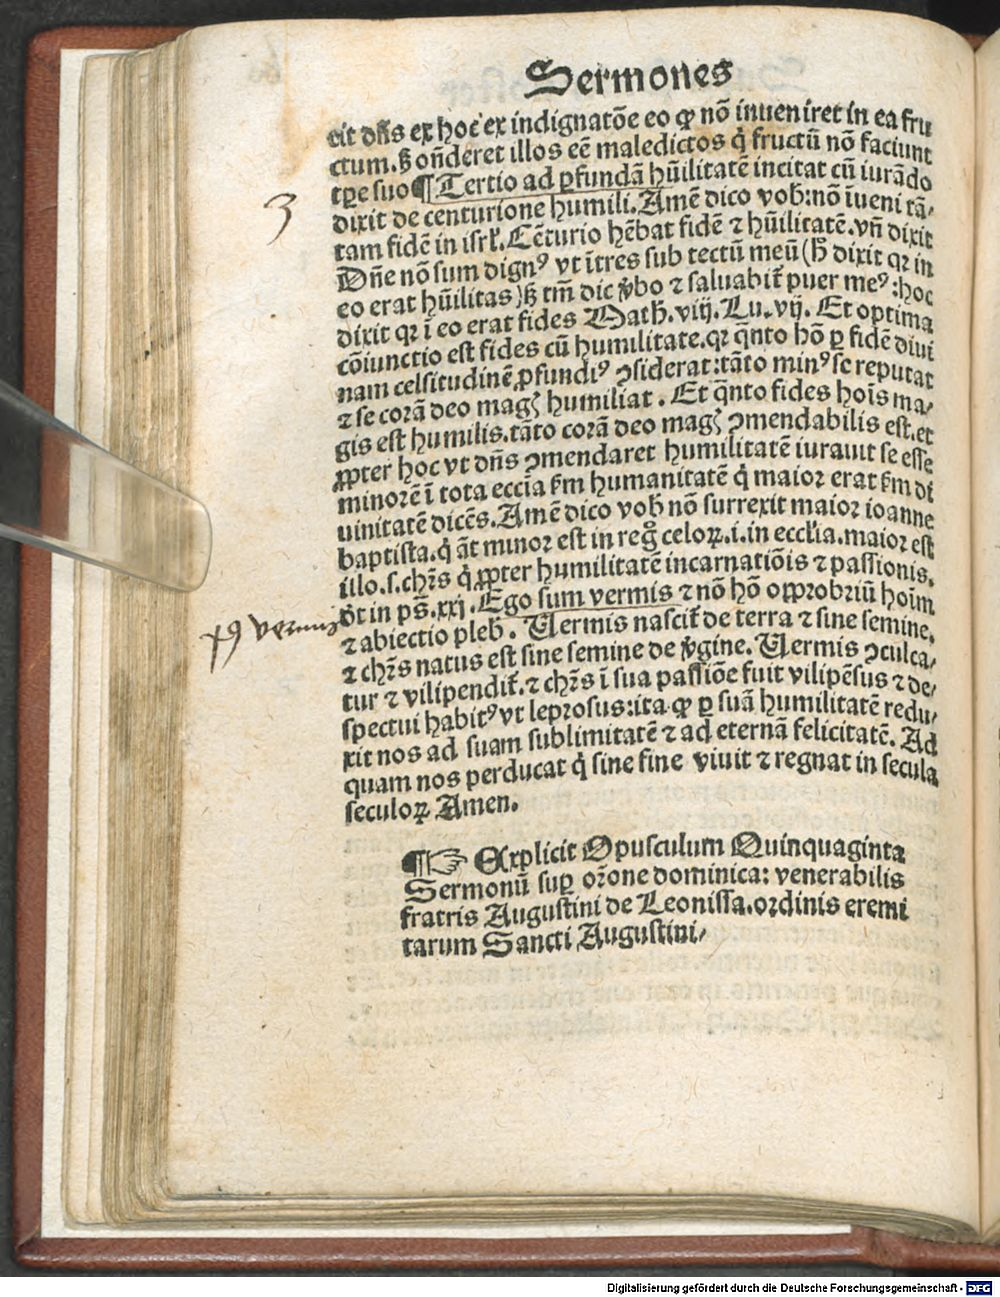 Sermones
xit dn̄s ex hoc ex indignatōe eo ꝙ nō inueniret in ea fru
ctum. sꝫ on̄deret illos eē maledictos q̇ fructū nō faciunt
tꝑe suo ¶ Tertio ad ꝓfundā hūilitatē incitat cū iurādo
3
dixit de centurione humili. Amē dico vob̄: nō īueni tā⸗
tam fidē in isrł. Cēturio hēbat fidē ⁊ hūilitatē. vn̄ dixit
Dn̄e nō sum dignꝰ vt ītres sub tectū meū (h̄ dixit qꝛ in
eo erat hūilitas) sꝫ tm̄ dic v̇bo ⁊ saluabit̄ puer meꝰ: hoc
dixit qꝛ ī eo erat fides Math̄. viij. Lu. vij. Et optima
cōiunctio est fides cū humilitate. qꝛ q̄nto hō ꝑ fidē diui
nam celsitudinē ꝓfundiꝰ ꝯsiderat: tāto minꝰ se reputat
⁊ se corā deo magꝭ humiliat. Et q̄nto fides hoīs ma⸗
gis est humilis. tāto corā deo magꝭ ꝯmendabilis est. et
ꝓpter hoc vt dn̄s ꝯmendaret humilitatē iurauit se esse
minorē ī tota eccīa ẜm humanitatē q̇ maior erat ẜm di
uinitatē dicēs. Amē dico vob̄ nō surrexit maior ioanne
baptista. q̇ āt minor est in reg̊ celoꝝ. i. in eccl̄ia. maior est
illo. s. chr̄s q̇ ꝓpter humilitatē incarnatiōis ⁊ passionis.
dt̄ in ps̄. xxj. Ego sum vermis ⁊ nō hō opprobriū hoīm
xp̄ꝰ vermis
⁊ abiectio pleb̄. Vermis nascit̄ de terra ⁊ sine semine.
⁊ chr̄s natus est sine semine de v̇gine. Vermis ꝯculca⸗
tur ⁊ vilipendit̄. ⁊ chr̄s ī sua passiōe fuit vilipēsus ⁊ de⸗
spectui habitꝰ vt leprosus: ita ꝙ ꝑ suā humilitatē redu⸗
xit nos ad suam sublimitatē ⁊ ad eternā felicitatē. Ad
quam nos perducat q̇ sine fine viuit ⁊ regnat in secula
seculoꝝ Amen.
¶☞ Explicit Opusculum Quinquaginta
Sermonū suꝑ or̄one dominica: venerabilis
fratris Augustini de Leonissa. ordinis eremi
tarum Sancti Augustini⸗
Digitalisierung gefördert durch die Deutsche Forschungsgemeinschaft - DFG